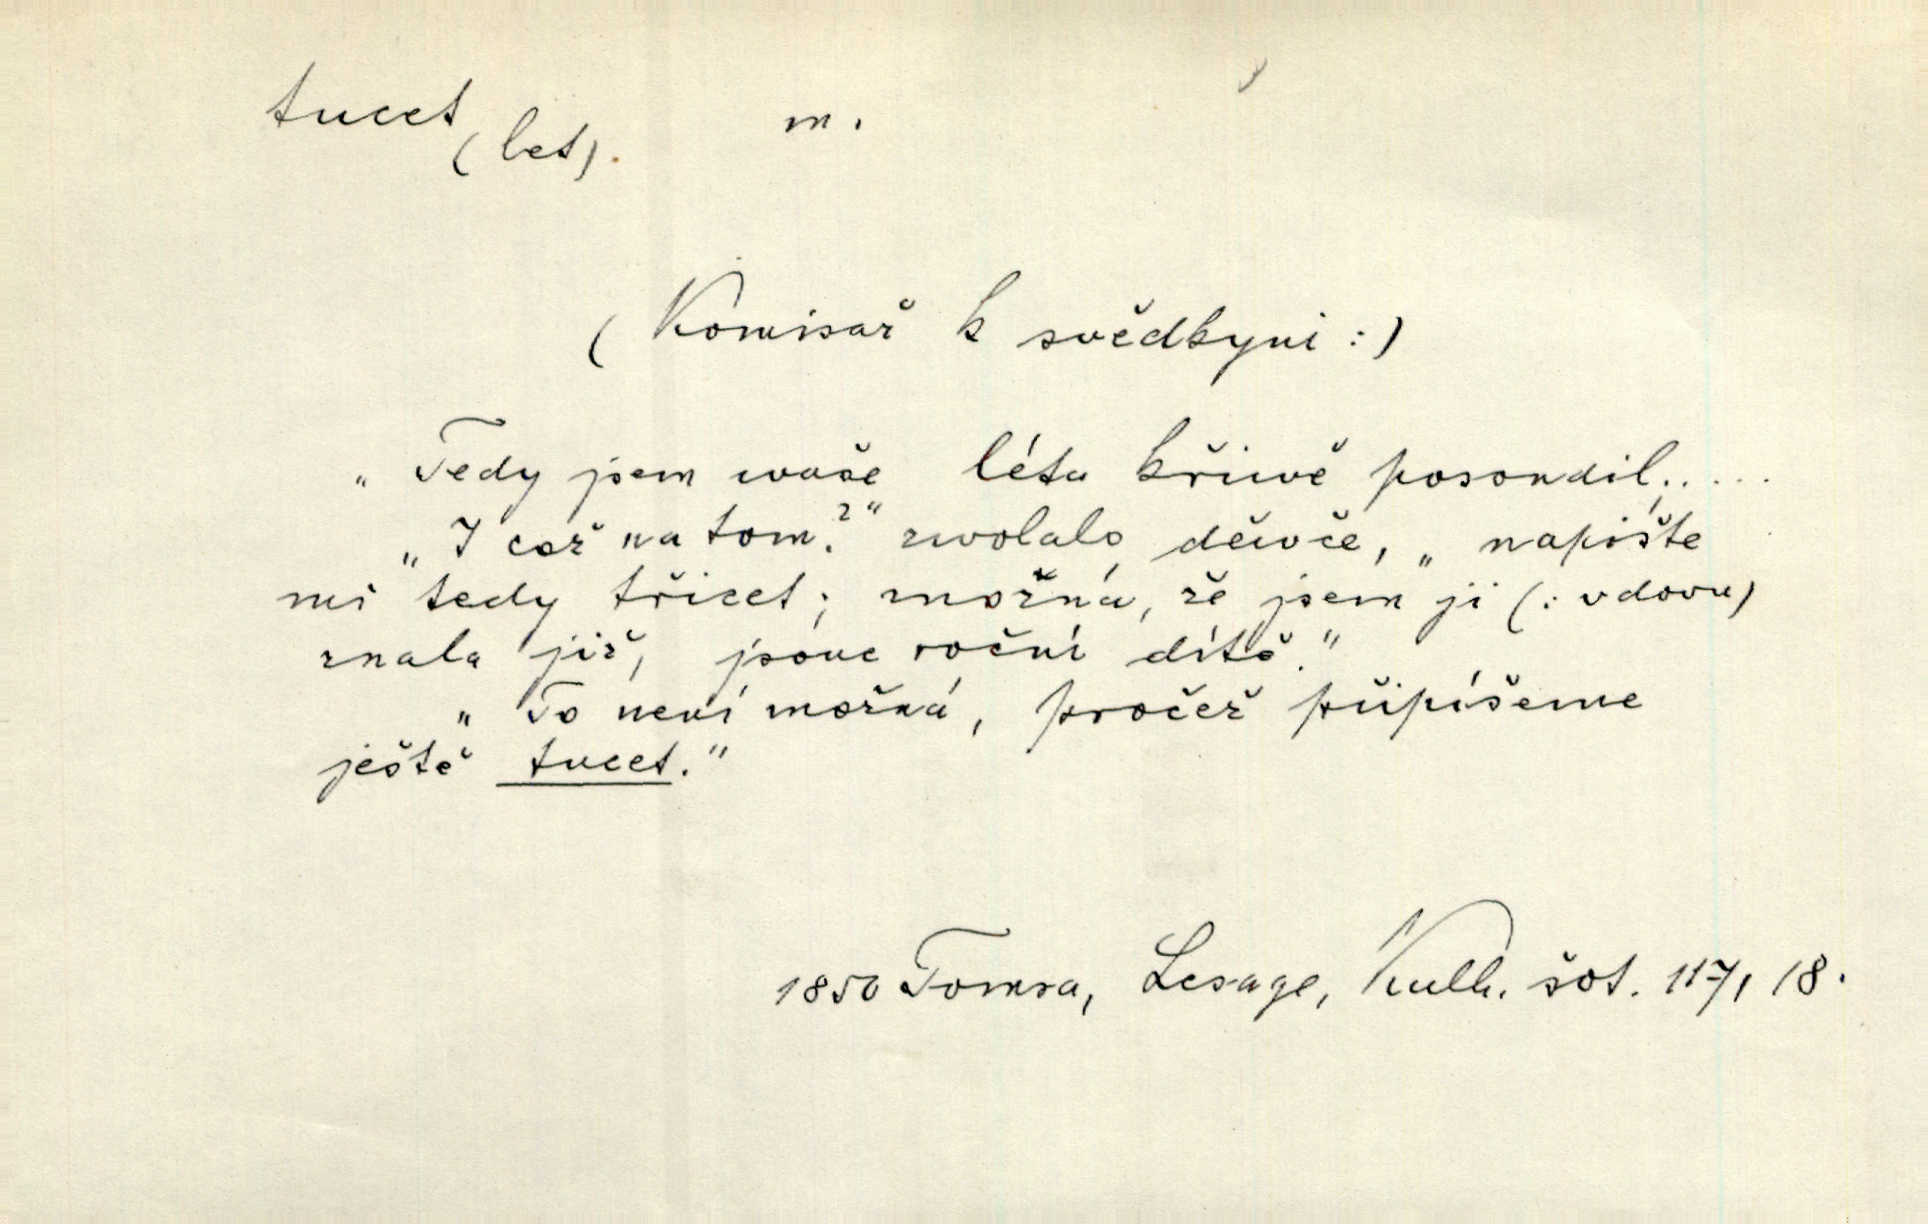 tucet m.
(let).
(Komisař k svědkyni :)
„Tedy jsem waše léta křiwě posoudil,.....
„I což na tom?" zwolalo děwče, „napište
mi tedy třicet; možná, že jsem ji (: vdovu)
znala již, jsouc roční dítě."
„To není možná, pročež připíšeme
ještě tucet."
1850 Tomsa, Lesage, Kulh. šot. 117, 18.